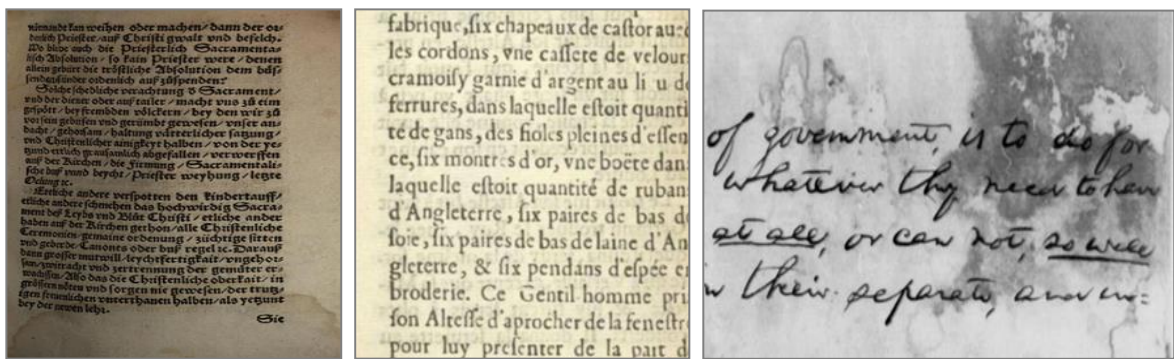 niemandt kan weihen oder machen / dann der or-
denlich Priester / auß Christi gwalt vnd befelch.
Wo blibe auch die Priesterlich Sacramenta-
lisch Absolution / so kain Priester were / denen
allein gebürt die tröstliche Absolution dem büs-
senden sünder ordenlich auß zůspenden?
Solche schedliche verachtung d̕ Sacrament /
vnd der diener oder auß tailer / macht vns zů eim
gespött / bey frembden völckern / bey den wir zů
vor sein gebrisen vnd gerümbt gewesen / vnser an-
dacht / gehorsam / haltung vätterlicher satzung /
vnd Christenlicher ainigkeyt halben / von der ye-
tzund etlich grausamlich abgefallen / verwerffen
auß der Kirchen / die firmung / Sacramentali-
sche bůß vnnd beycht / Priester weyhung / letzte
Oelung ꝛc.
Etliche andere verspotten den kindertauff /
etliche andere schenden das hochwirdig Sacra-
ment deß Leybs vnd Blůt Christi / etliche ander
haben auß der Kirchen gethon / alle Christenliche
Ceremonien / gemaine ordenung / züchtige sitten
vnd geberde / Canones oder bůß regel ꝛc. Darauß
dann grosser mutwill / leychtfertigkait / vngehor-
sam / zwitracht vnd zertrennung der gemüter er-
wachssen / Also das die Christenliche oberkait / in
grössern nöten vnd sorgen nie gewesen / der trutz-
igen freuenlichen vnterthanen halben / als yetzunt
bey der newen lehr.
Sie
fabrique, ſix chapeaux de caſtor auec
les cordons, vne caſſete de velour
cramoiſy garnie d'argent au li u de
ferrures, dans laquelle eſtoit quanti
té de gans, des fioles pleines d'eſſen
ce, ſix montres d'or, vne boëte dan
laquelle eſtoit quantité de ruban
d'Angleterre, ſix paires de bas de
ſoie, ſix paires de bas de laine d'An
gleterre, & ſix pendans d'eſpée en
broderie. Ce Gentil homme pri
ſon Alteſſe d'aprocher de la feneſtre
pour luy preſenter de la part d
of government, is to do for
whatever they need to hav
at all, or can not, so well
n their separate, and in=